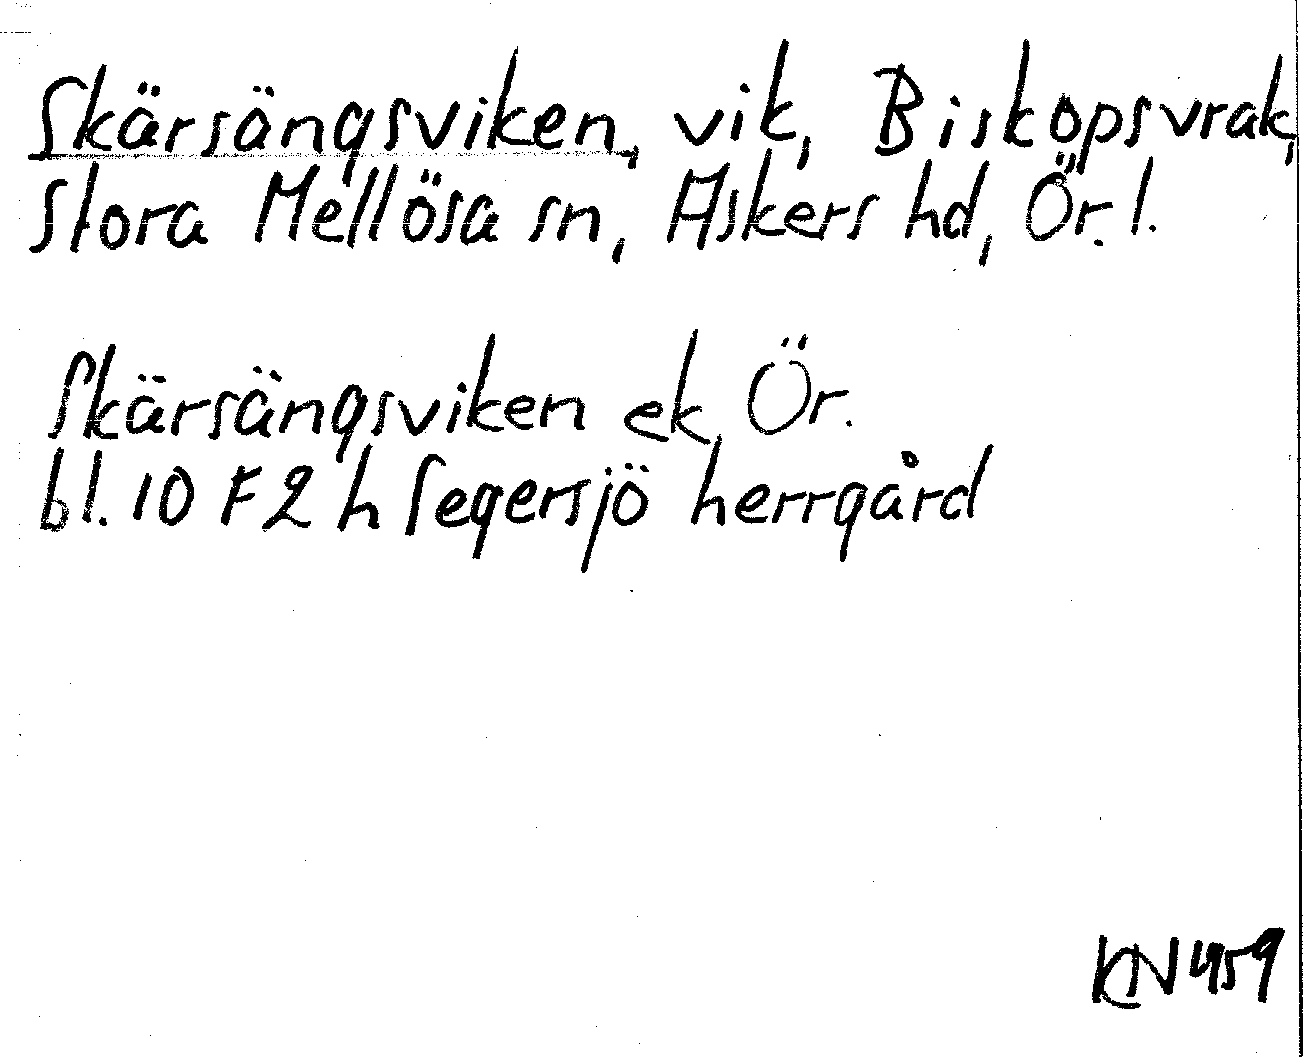 Skärsängsviken, vik, Biskopsvrak,
Stora Mellösa sn, Askers hd, Ör. l.
Skärsängsviken ek Ör.
bl. 10 F 2 h Segersjö herrgård
KN 459